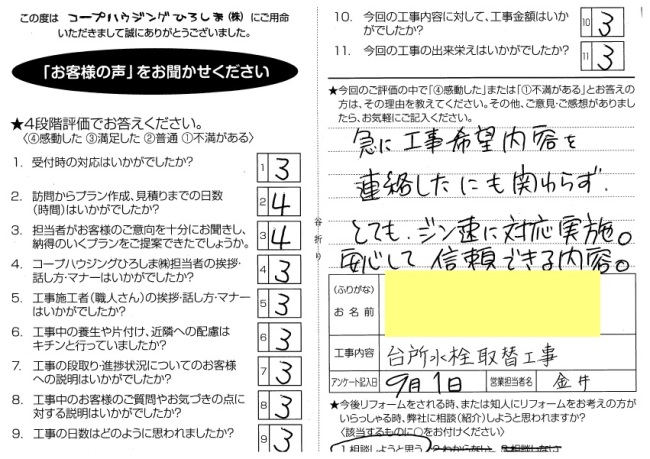 この度は コープハウジングひろしま(株) にご用命
いただきまして誠にありがとうございました。
「お客様の声」をお聞かせください
★4段階評価でお答えください。
〈④感動した ③満足した ②普通 ①不満がある〉
1. 受付時の対応はいかがでしたか? 1 3
2. 訪問からプラン作成、見積りまでの日数
(時間)はいかがでしたか? 2 4
3. 担当者がお客様のご意向を十分にお聞きし、
納得のいくプランをご提案できたでしょうか。 3 4
4. コープハウジングひろしま㈱担当者の挨拶・
話し方・マナーはいかがでしたか? 4 3
5. 工事施工者(職人さん)の挨拶・話し方・マナー
はいかがでしたか? 5 3
6. 工事中の養生や片付け、近隣への配慮は
キチンと行っていましたか? 6 3
7. 工事の段取り・進捗状況についてのお客様
への説明はいかがでしたか? 7 3
8. 工事中のお客様のご質問やお気づきの点に
対する説明はいかがでしたか? 8 3
9. 工事の日数はどのように思われましたか? 9 3
谷折り
10. 今回の工事内容に対して、工事金額はいか
がでしたか? 10 3
11. 今回の工事の出来栄えはいかがでしたか? 11 3
★今回のご評価の中で「④感動した」または「①不満がある」とお答えの
方は、その理由を教えてください。その他、ご意見・ご感想がありまし
たら、お気軽にご記入ください。
急に工事希望内容を
連絡したにも関わらず.
とても、ジン速に対応実施。
安心して信頼できる内容。
(ふりがな)
お名前
工事内容 台所水栓取替工事
アンケート記入日 9月1日 営業担当者名 金井
★今後リフォームをされる時、または知人にリフォームをお考えの方が
いらっしゃる時、弊社に相談(紹介)しようと思われますか?
〈該当するものに○をお付けください〉
1.相談しようと思う 2.わからない 3.相談しない